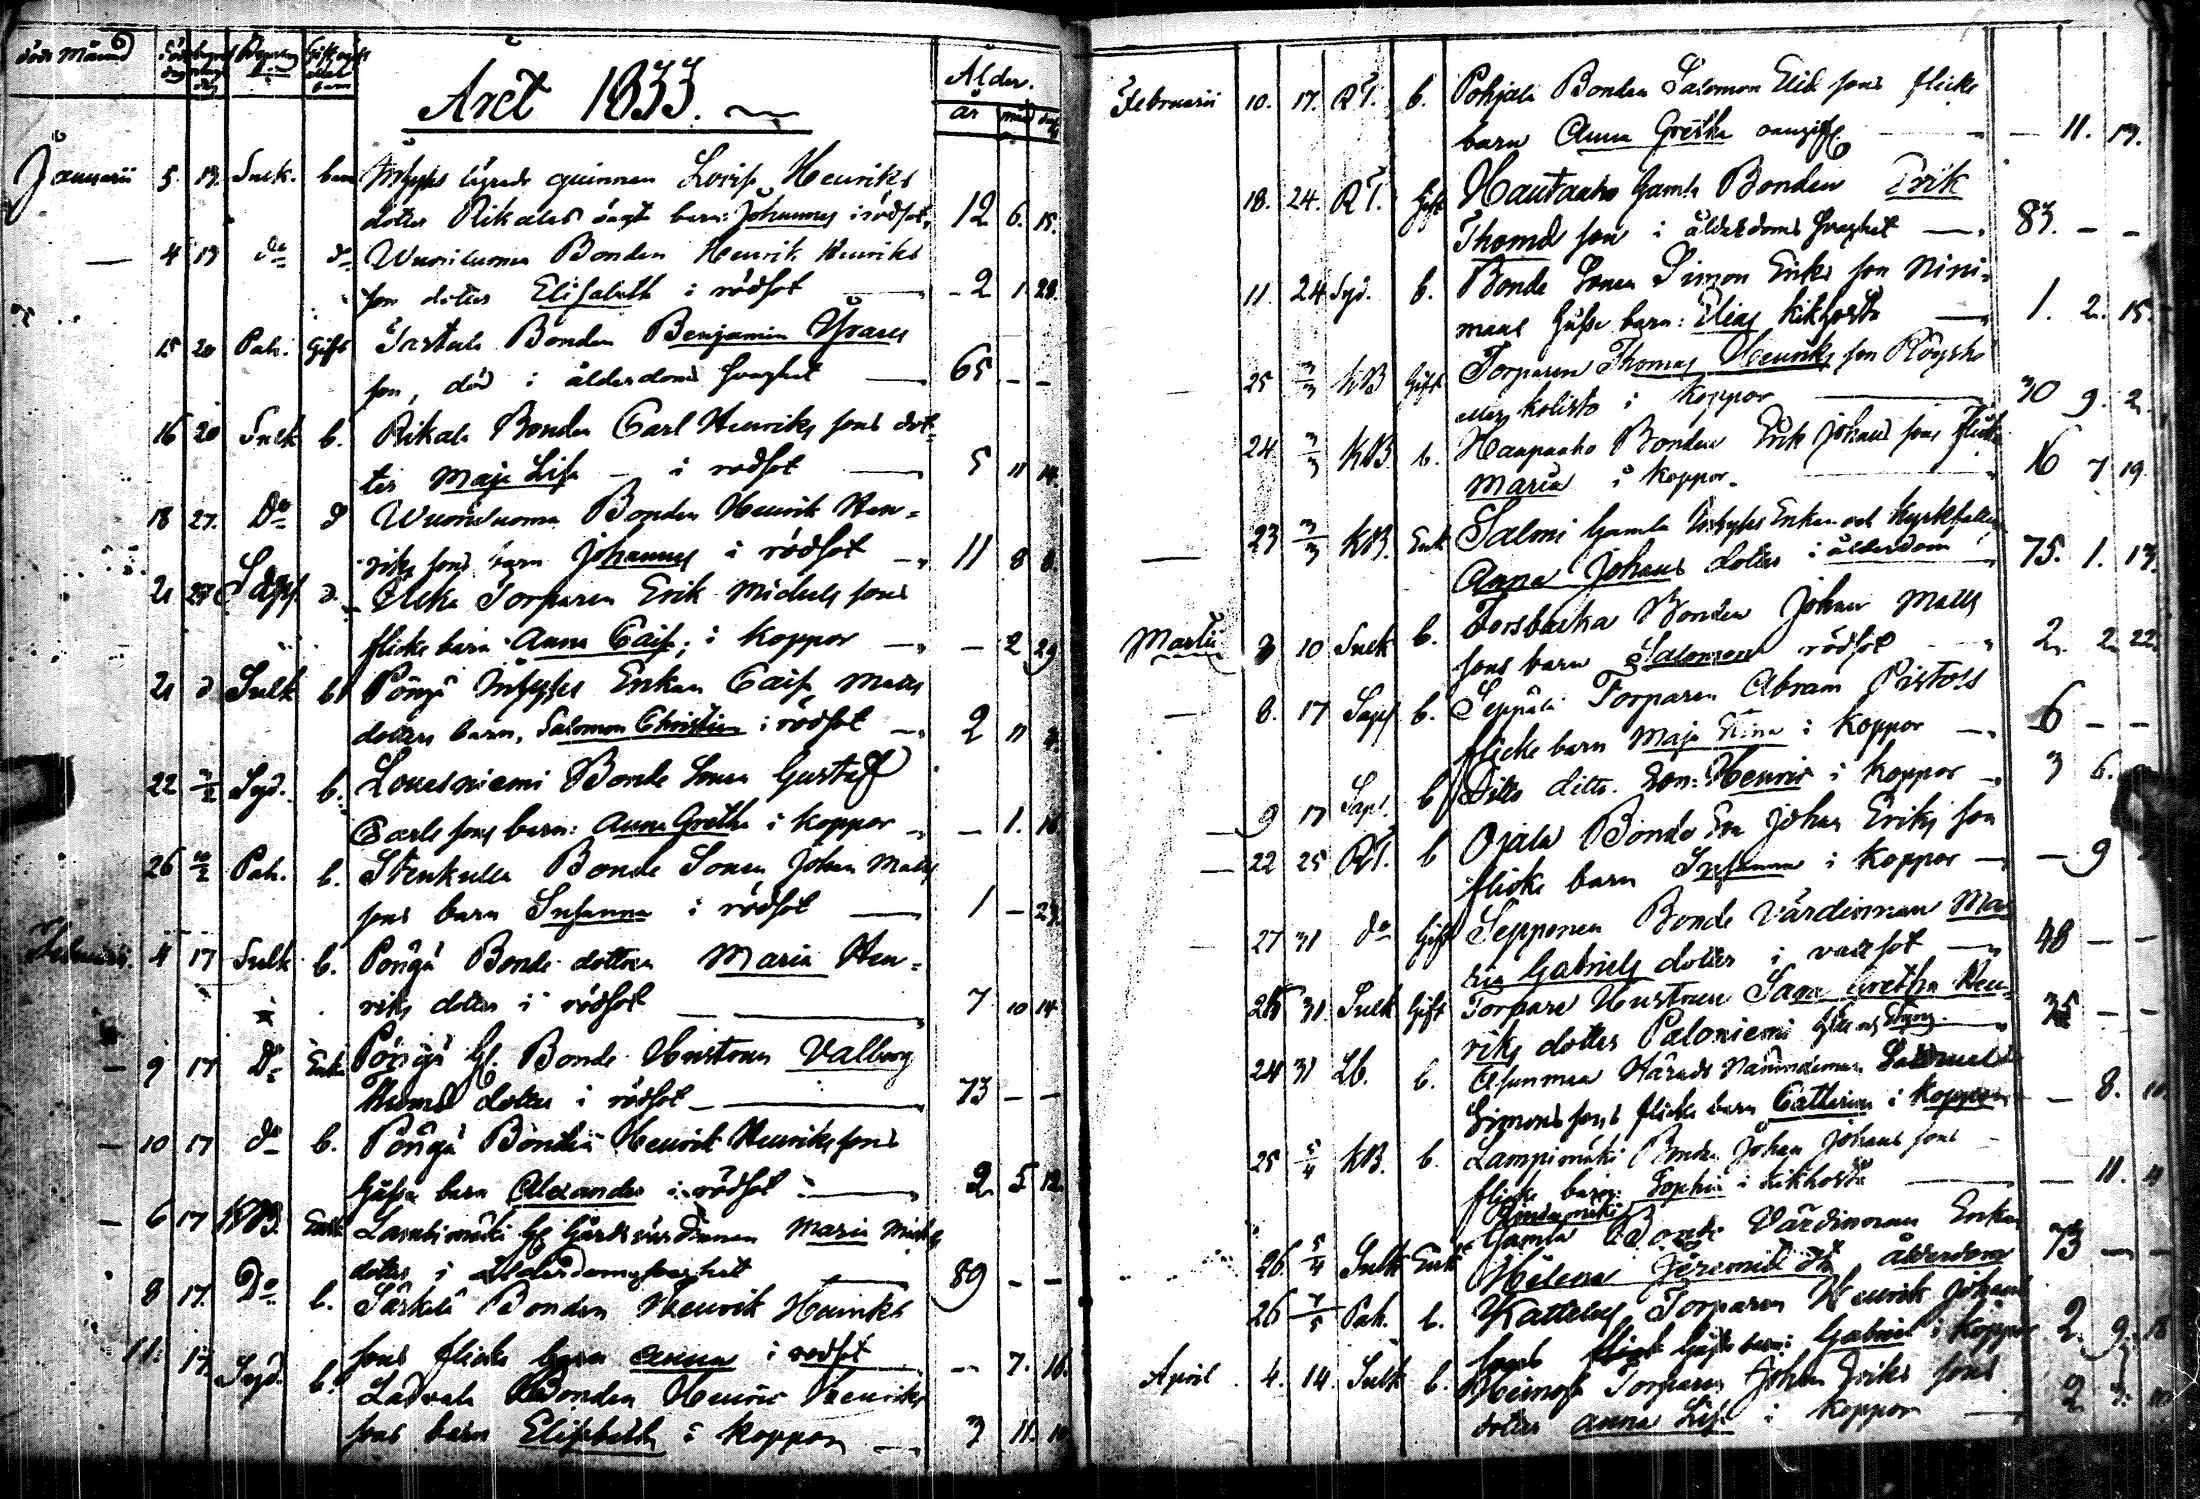 döde Månad Död dag begrafnings dag Gift ogift eller barn
Året 1833. Ålder.
år mån dag
Januarii 5. 13. Sulk. barn Inhyses lägrade quinnan Lovisa Henriks
dotter Rikalas oägta barn: Johannes i rödsot, 12 6. 15.
— 4 13 do do Wuorenmaa Bonden Henrik Henriks
son dotter Elisabeth i rödsot — 2 1. 28.
15 20 Pah. Gift Jartala Bonden Benjamin Görans
son, död i ålderdoms svaghet — 65 — —
16 20 Sulk b. Rikala Bonden Carl Henriks sons dot=
ter Maja Lisa — i rödsot — 5 11 14.
18 27. Do d Bonden Henrik Hen=
riks sons barn Johannes i rödsot — 11 8 8.
21 27 Sapp. d. Torparen Erik Michels sons
flicke barn Anna Caisa; i koppor — — 2 29
21 d Sulk b Pöngä Inhyses Enkan Caisa Matts
dotters barn, Salomon Christian i rödsot — 2 11
22 3/2 Syd. b. Louesniemi Bonde Sonen Gustaf
Carls sons barn: Anna Gretha i koppor — — 1. 16
26 10/2 Pah. b. Stenkulla Bonde Sonen Johan Matts
sons barn Susanna i rödsot — 1 — 27.
Februari. 4 17 Sulk b. Pöngä Bonde dottren Maria Hen=
riks dotter i rödsot — 7 10 14
— 9 17 Do Enka Pöngä Gl. Bonde Hustrun Valborg
Thomas dotter i rödsot — 73 — —
— 10 17 do b. Pöngä Bonden Henrik Henriks sons
gåsse barn Alexander i rödsot — 2. 5 12
— 6 17 KB. Enk Lambimäki Gl Gårdsvärdinnan Maria Michels
dotter i Ålderdomssvaghet — 89 — —
8 17. Do b. Särkelä Bonden Henrik Henriks
sons flicke barn Anna i rodsot — 7. 16.
11. 17. Syd. b. Ladvala Bonden Henric Henriks
sons barn Elisabeth i koppor — 3 11. 10
Februarii 10. 17. RT. b. Pohjala Bonden Salomon Elias sons flicke
barn Anna Gretha oangifl — — 11. 13.
18. 24. RT. Gift Hautaaho Gamla Bonden Erik
Thomas son i ålderdoms svaghet — 83. — —
11 24 Syd. b. Bonde Sonen Simon Eriks son Nini=
maas Gåsse barn: Elias kikhosta — 1. 2. 15.
25 3/3 KB Gift Torparen Thomas Henriks son
eller kolisto i koppor — 30 9. 2.
24 3/3 KB. b. Haapaaho Bonden Erik Johans sons flicka
Maria i koppor. 16 7 19.
— 23 3/3 KB. Enk Saloni Gamla Inhyses Enkan och kyrkfattiga
Anna Johans dotter i ålderdom — 75. 1. 13.
Martii 3 10 Sulk b. Forsbacka Bonden Johan Matts
sons barn Salomon rödsot — 2. 2. 22.
— 8. 17 Sapp b. Seppälä Torparen Abram Pistols
flicke barn Maja Stina i koppor — 6 — —
— 9 17 Sapp. b Ditto ditto. son: Henric i koppor — 3 6.
— 22 25 RT. b Ojala Bonde Son Johan Eriks son
flicke barn Susanna i koppor — — 9
— 27 31 do Gift Sepponen Bonde Värdinnan Ma=
ria Gabriels dotter i vattsot — 48 — —
26 31. Sulk Gift Torpare Hustrun Saga Gretha Hen=
riks dotter Paloniemi 35 — —
24 31 Lb. b. Asunmaa Härads Nämndeman
Simons sons flicke barn Catharina i koppor — 8. 10
25 5/4 KB. b. Lampimäki Bonden Johan Johans sons
flicke barn Sophia i kikhosta — — 11. 4
26 5/4 Sulk Enk Gamla Bonde Värdinnan Enkan
Helena Jeremias do ålderdom 73 — —
26 7/5 Pah. b. Kattelus Torparen Henrik Johans
sons Gåsse barn: Gabriel i koppor 2. 9. 18
April 4. 14. Sulk b. Heinoja Torparen Johan Eriks sons
dotter Anna Lisa i koppor — 2 3. 10